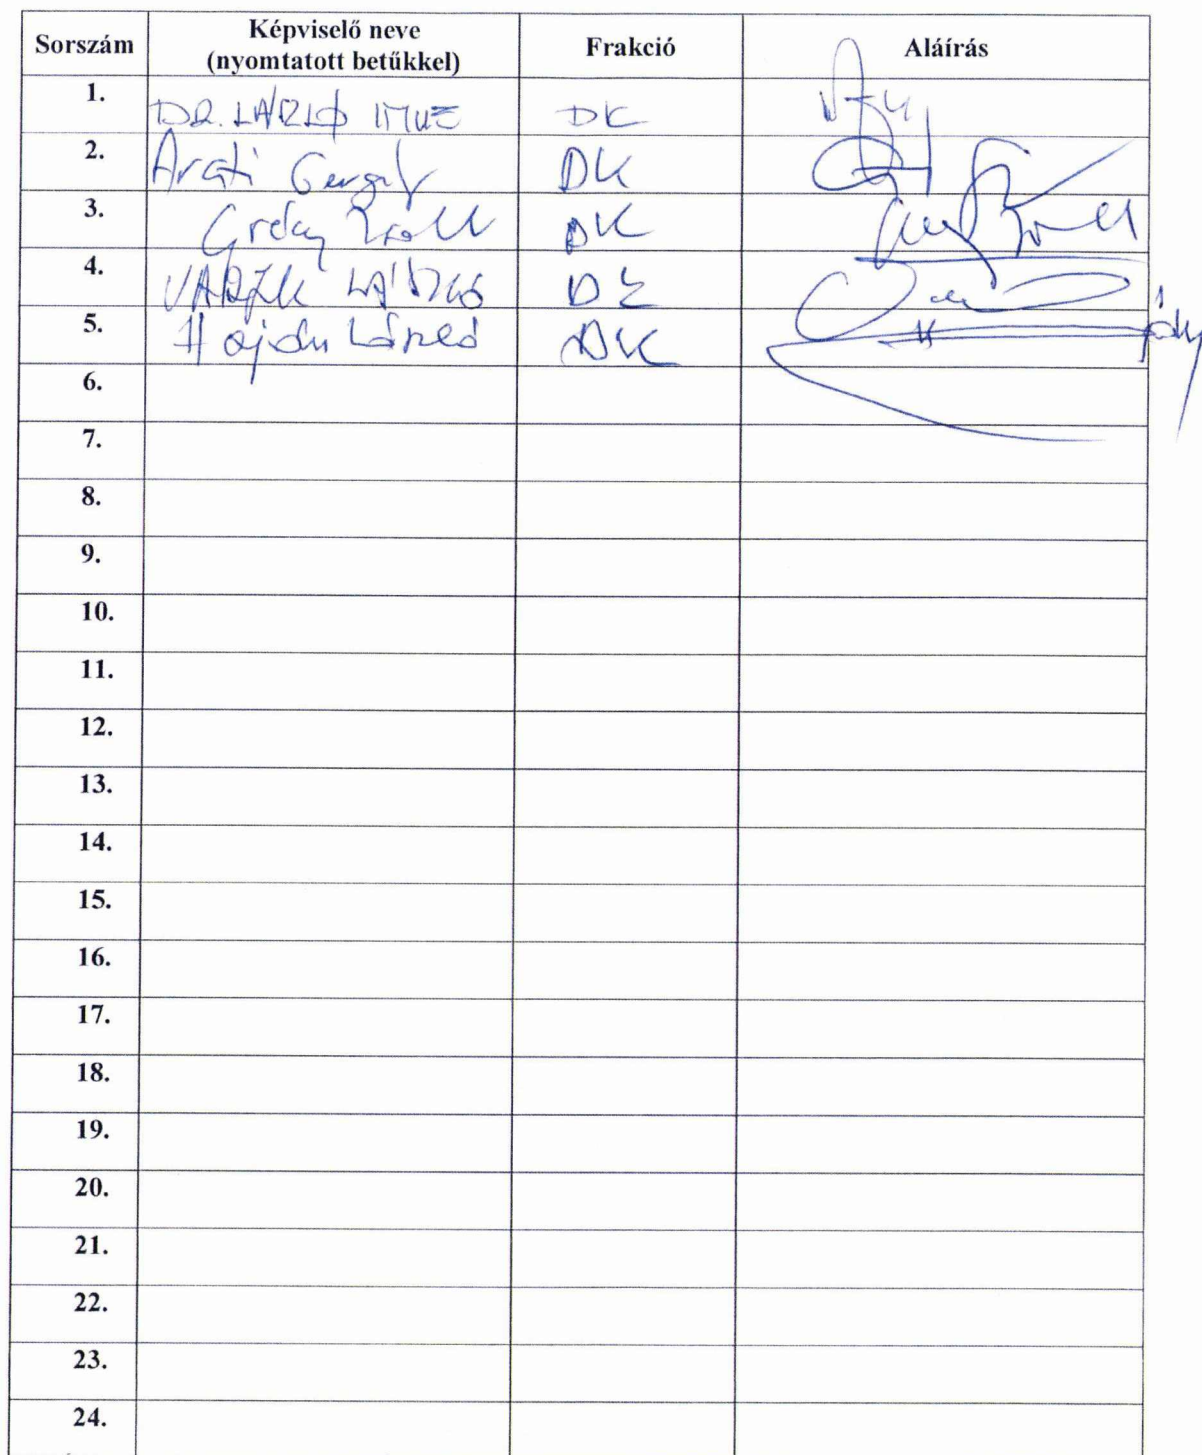 Sorszám Képviselő neve (nyomtatott betűkkel) Frakció Aláírás
1. DR. LÁSZLÓ IMRE DK
2. Arató Gergely DK
3. Gréczy Zsolt DK
4. VARJU LÁSZLÓ DK
5. Hajdu László DK
6.
7.
8.
9.
10.
11.
12.
13.
14.
15.
16.
17.
18.
19.
20.
21.
22.
23.
24.